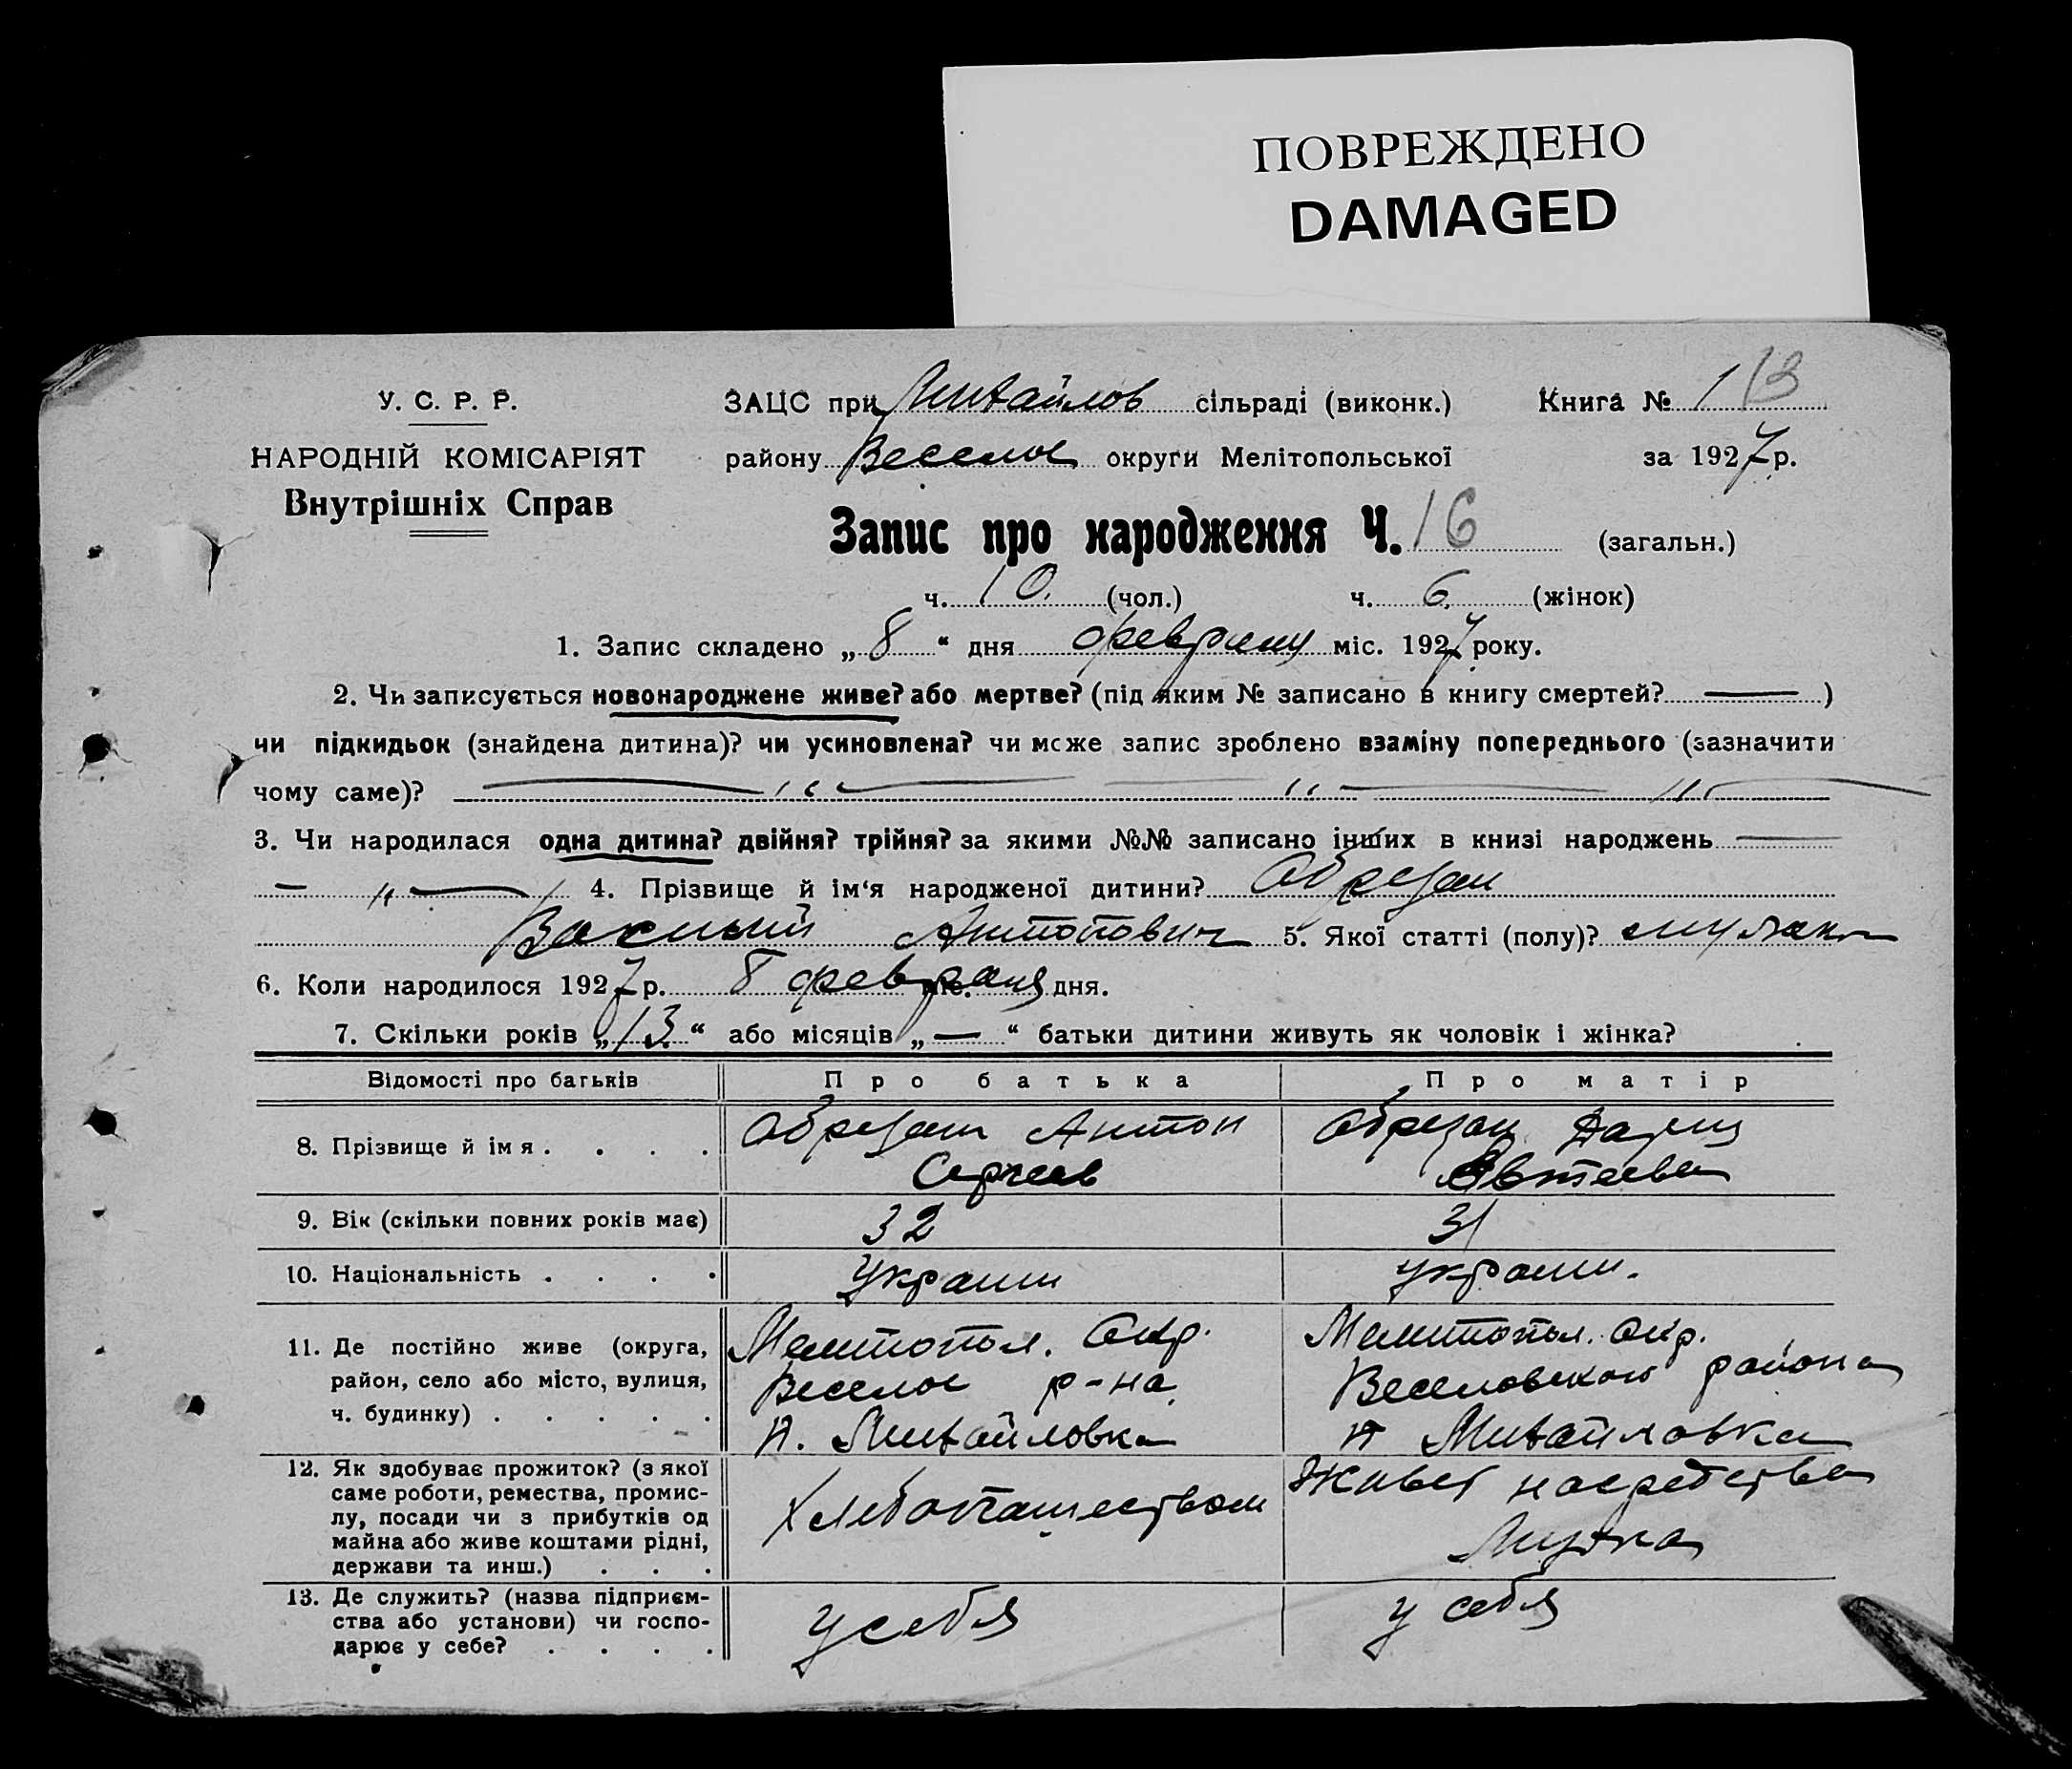 ПОВРЕЖДЕНО
DAMAGED
У. С. Р. Р.
НАРОДНІЙ КОМІСАРІЯТ
Внутрішніх Справ
ЗАЦС при Михайлов сільраді (виконк.) Книга № 1 13
району Веселое округи Мелітопольської за 1927 р.
Запис про народження Ч. 16 (загальн.)
ч. 10. (чол.) ч. 6 (жінок)
1. Запис складено „ 8 “ дня міс. 1927 року.
2. Чи записується новонароджене живе? або мертве? (під яким № записано в книгу смертей? — )
чи підкидьок (знайдена дитина)? чи усиновлена? чи може запис зроблено взаміну попереднього (зазначити
чому саме)? — „ — „ — „
3. Чи народилася одна дитина? двійня? трійня? за якими №№ записано інших в книзі народжень —
— „ — 4. Прізвище й ім‘я народженої дитини? Обрезан
Василий Антонович 5. Якої статті (полу)?
6. Коли народилося 1927 р. 8 февраля міс. дня.
7. Скільки років „ 13 “ або місяців „ — “ батьки дитини живуть як чоловік і жінка?
Відомості про батьків Про батька Про матір
8. Прізвище й імя . . . . Обрезан Антон Обрезан
Сергеев Евтеева
9. Вік (скільки повних років має) 32 31
10. Національність . . . . Украин Украин.
11. Де постійно живе (округа, район, село або місто, вулиця, ч. будинку) . . . . .
Мелитопол. Окр. Мелитопол. окр.
Веселое р-на Веселовского района
Н. Михайловка Н Михайловка
12. Як здобуває прожиток? (з якої саме роботи, ремества, промислу, посади чи з прибутків од майна або живе коштами рідні, держави та инш.) . . .
Хлебопашеством Живет на средства
Мужа
13. Де служить? (назва підприємства або установи) чи господарює у себе? . . . .
у себя у себя